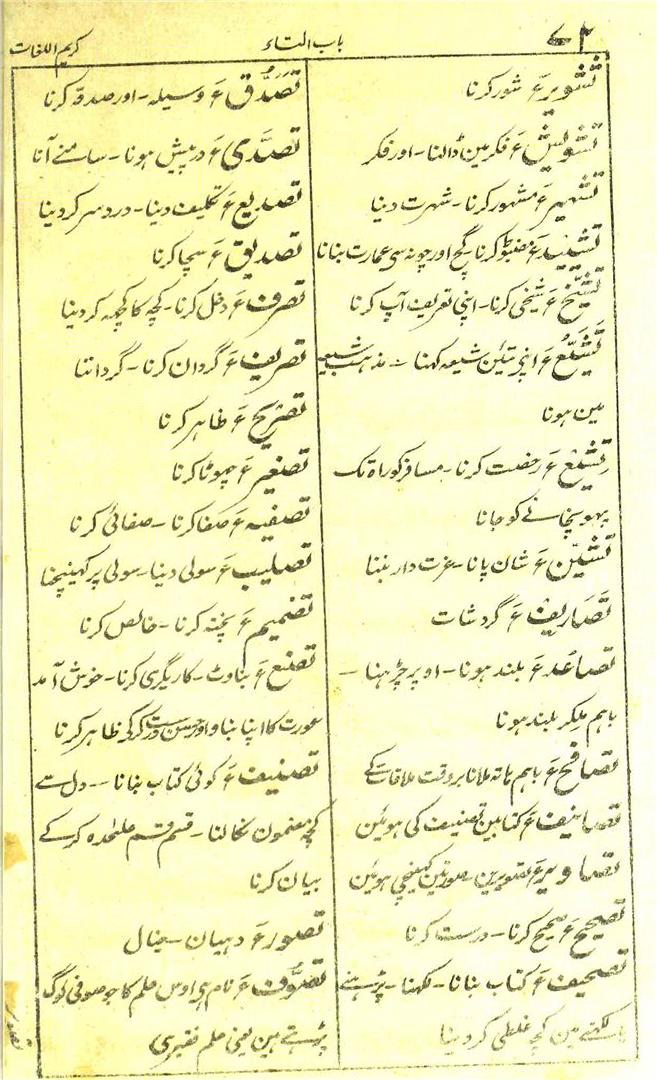 ۷۲
باب التاء
کریم اللغات
تشویر ۶ شور کرنا
تشویش ۶ فکر مین ڈالنا - اور فکر
تشہیر ۶ مشہور کرنا - شہرت دینا
تشیید ۶ مضبوط کرنا - گچ اور چونہ سی عمارت بنانا
تشیّخ ۶ شیخی کرنا - اپنی تعریف آپ کرنا
تَشَیُّع ۶ اپنی تئین شیعہ کہنا - مذہب شیعہ
مین ہونا
تشییع ۶ رخصت کرنا - مسافر کو راہ تک
پہونچانے کو جانا
تشیّن ۶ شان پانا - عزت دار بننا
تَصَارِیف ۶ گردشات
تصاعد ۶ بلند ہونا - اوپر چڑہنا -
باہم ملکر بلند ہونا
تصافح ۶ باہم ہاتہ ملانا بروقت ملاقات کے
تصانیف ۶ کتابین تصنیف کی ہوئین
تصاویر ۶ تصویرین صورتین کہینچی ہوئین
تصحیح ۶ صحیح کرنا - درست کرنا
تصحیف ۶ کتاب بنانا - لکہنا - پڑہنے
یا لکہنے مین کچہ غلطی کر دینا
تَصَدُّق ۶ وسیلہ - اور صدقہ کرنا
تصدّی ۶ درپیش ہونا - سامنے آنا
تصدیع ۶ تکلیف دینا - دردسر کر دینا
تصدیق ۶ سچا کرنا
تصرف ۶ دخل کرنا - کچہ کا کچہہ کر دینا
تصریف ۶ گردان کرنا - گرداننا
تصریح ۶ ظاہر کرنا
تصغیر ۶ چہوٹا کرنا
تصفیہ ۶ صفا کرنا - صفائی کرنا
تصلیب ۶ سولی دینا - سولی پر کہینچنا
تصمیم ۶ پختہ کرنا - خالص کرنا
تصنع ۶ بناوٹ - کاریگری کرنا - خوش آمد
عورت کا اپنا بناو اور حسن درست کرکی ظاہر کرنا
تصنیف ۶ کوئی کتاب بنانا -- دل سے
کچہ مضمون نکالنا - قسم قسم علٰحدہ کرکے
بیان کرنا
تصور ۶ دہیان - خیال
تصوُّف ۶ نام ہی اوس علم کا جو صوفی لوگ
پڑہتے ہین یعنی علم فقیری